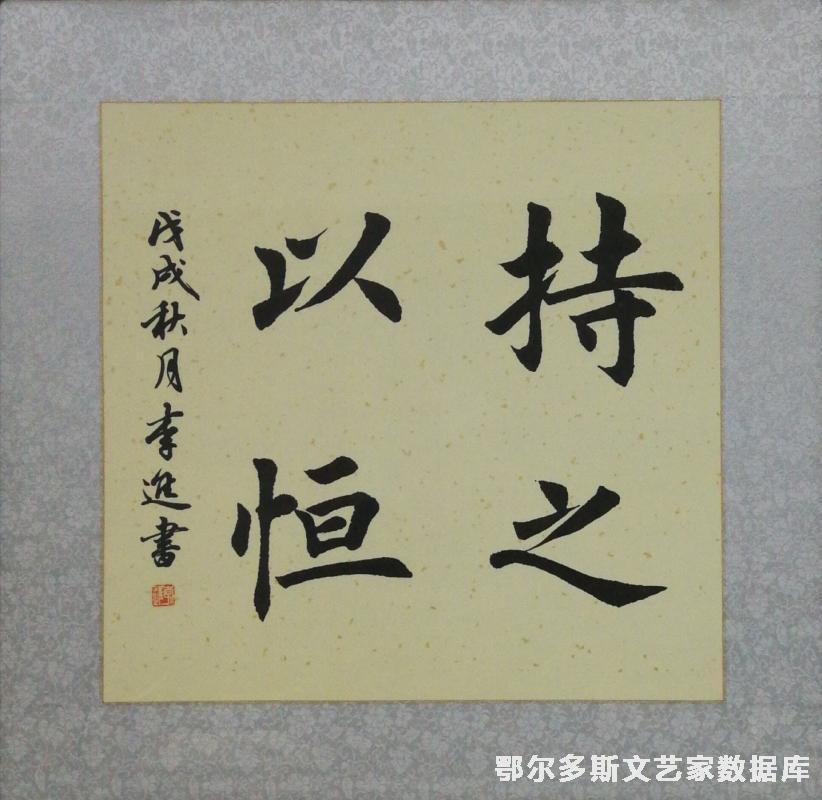 持之
以恒
戊戌秋月李進書
鄂尔多斯文艺家数据库